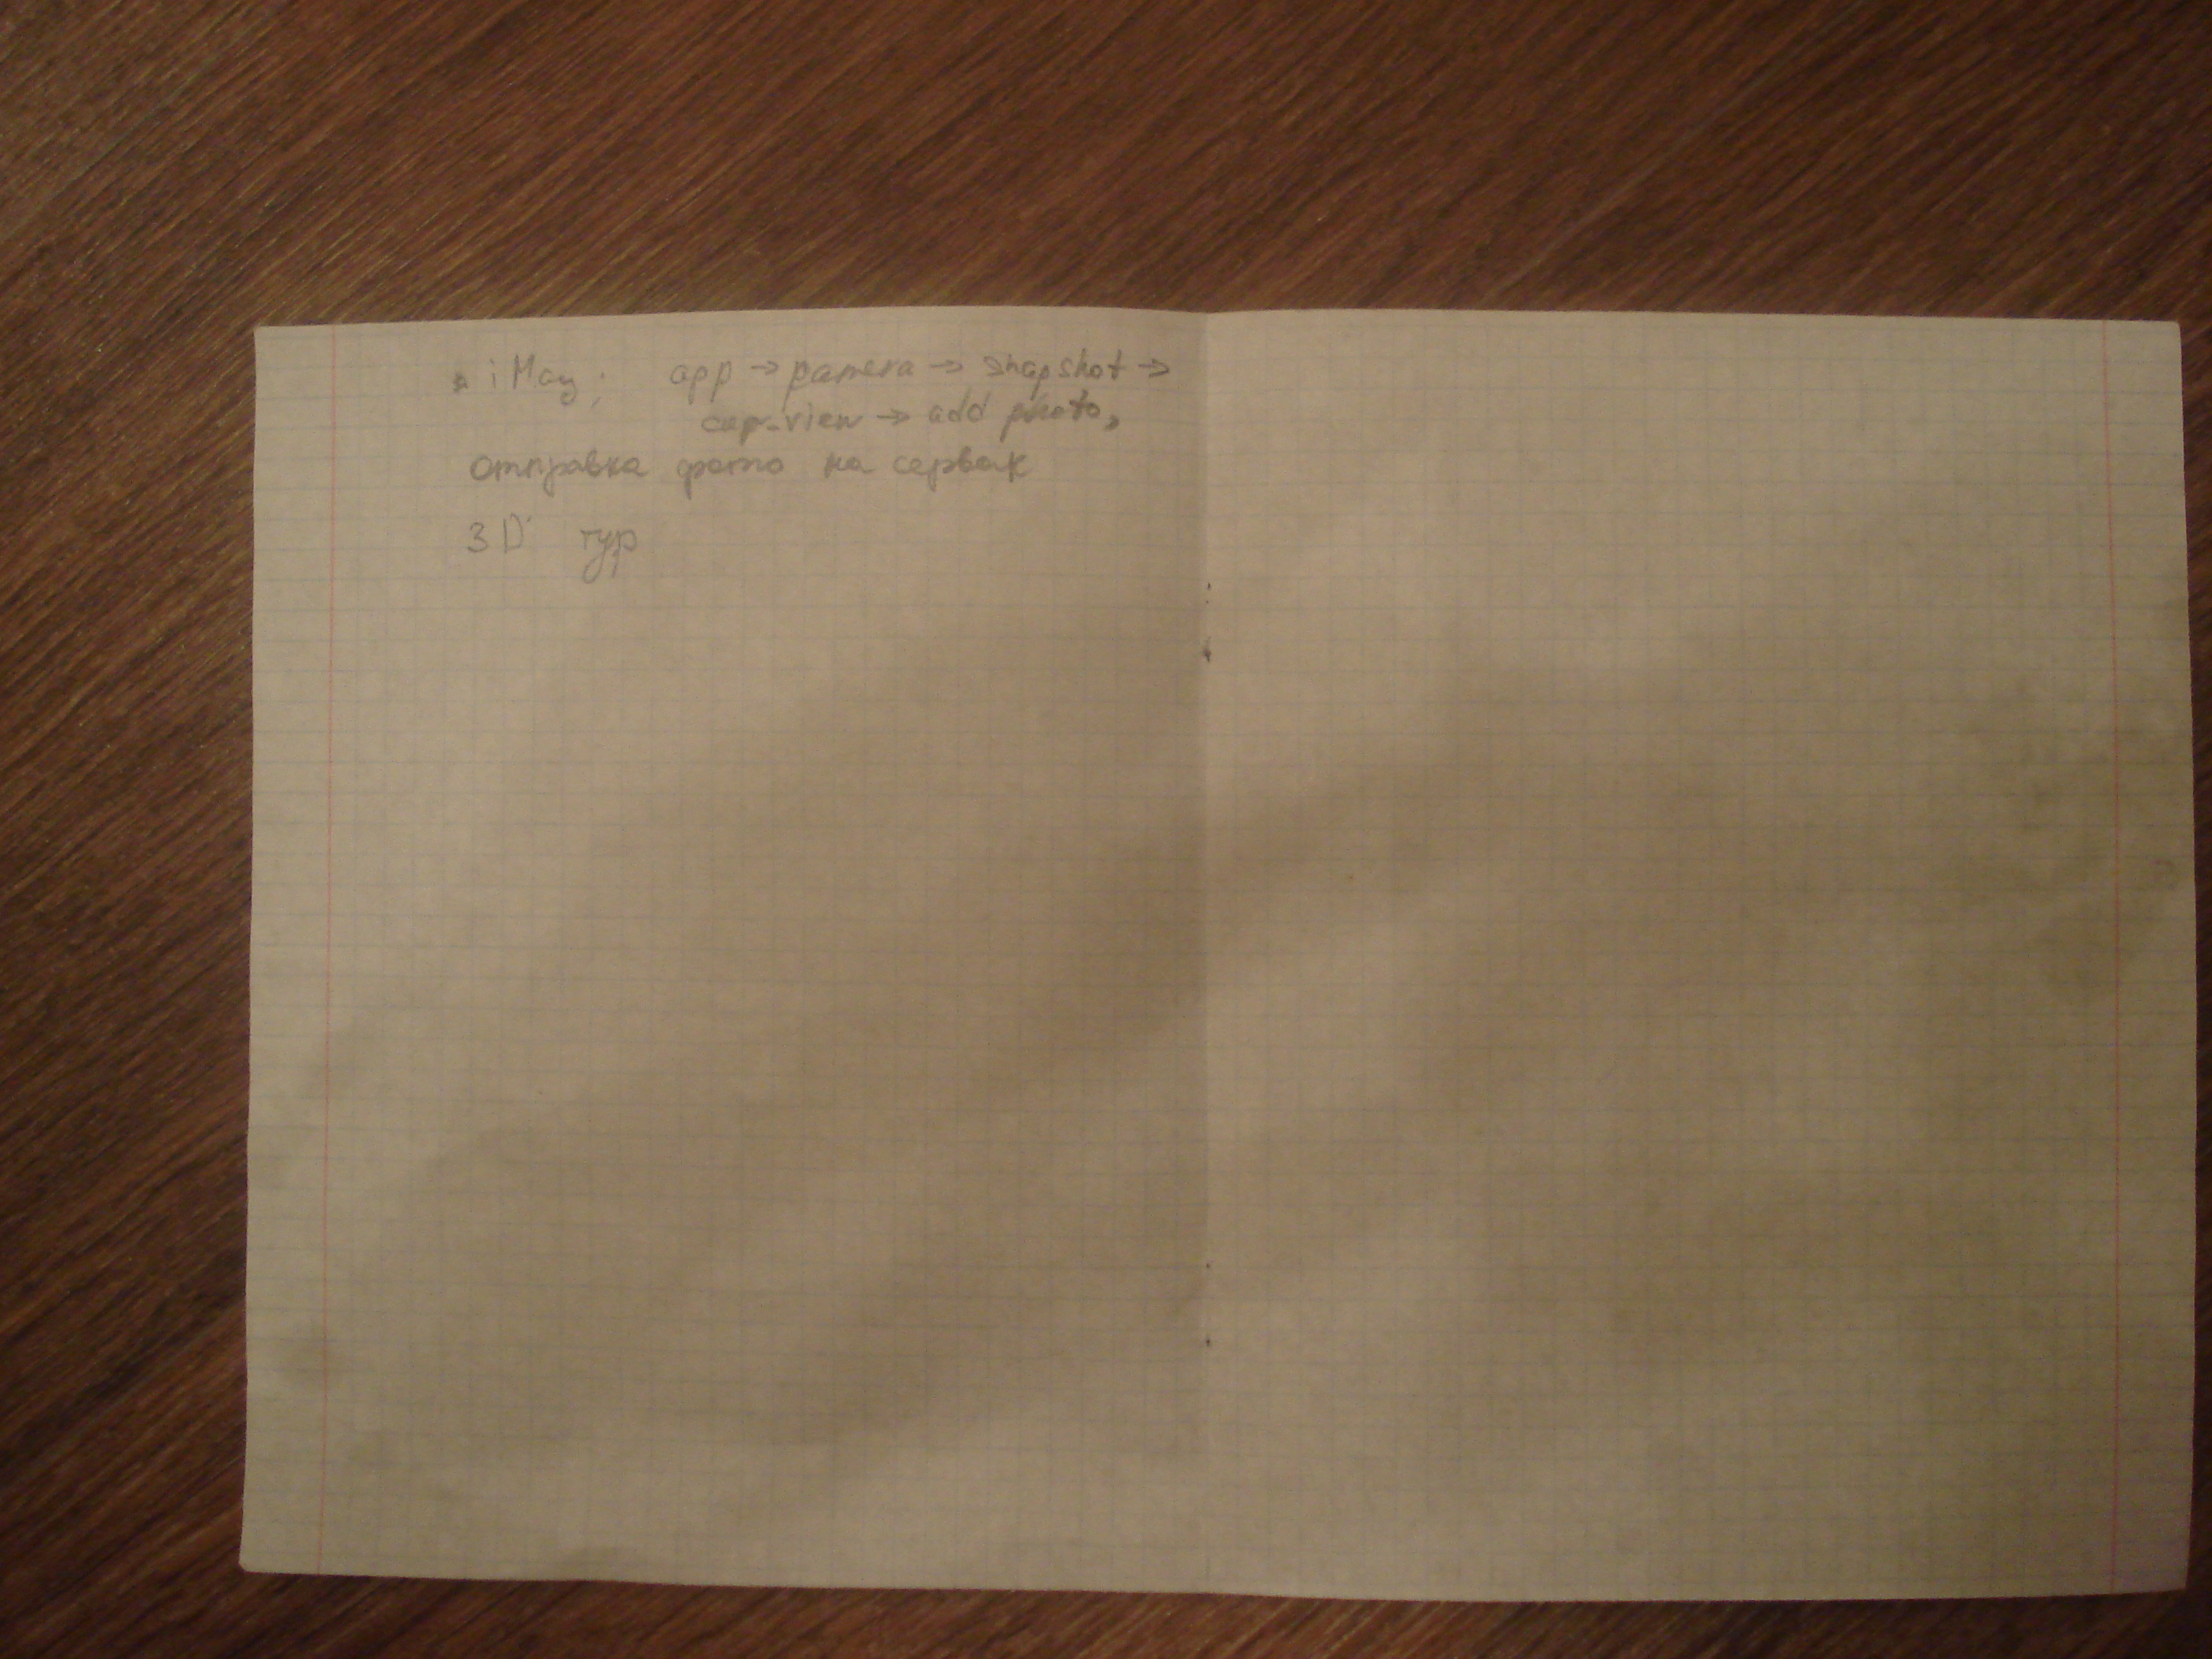 iMag; app → pamera → snapshot →
cap-view → add photo,
отправка фото на сервак
3D тур